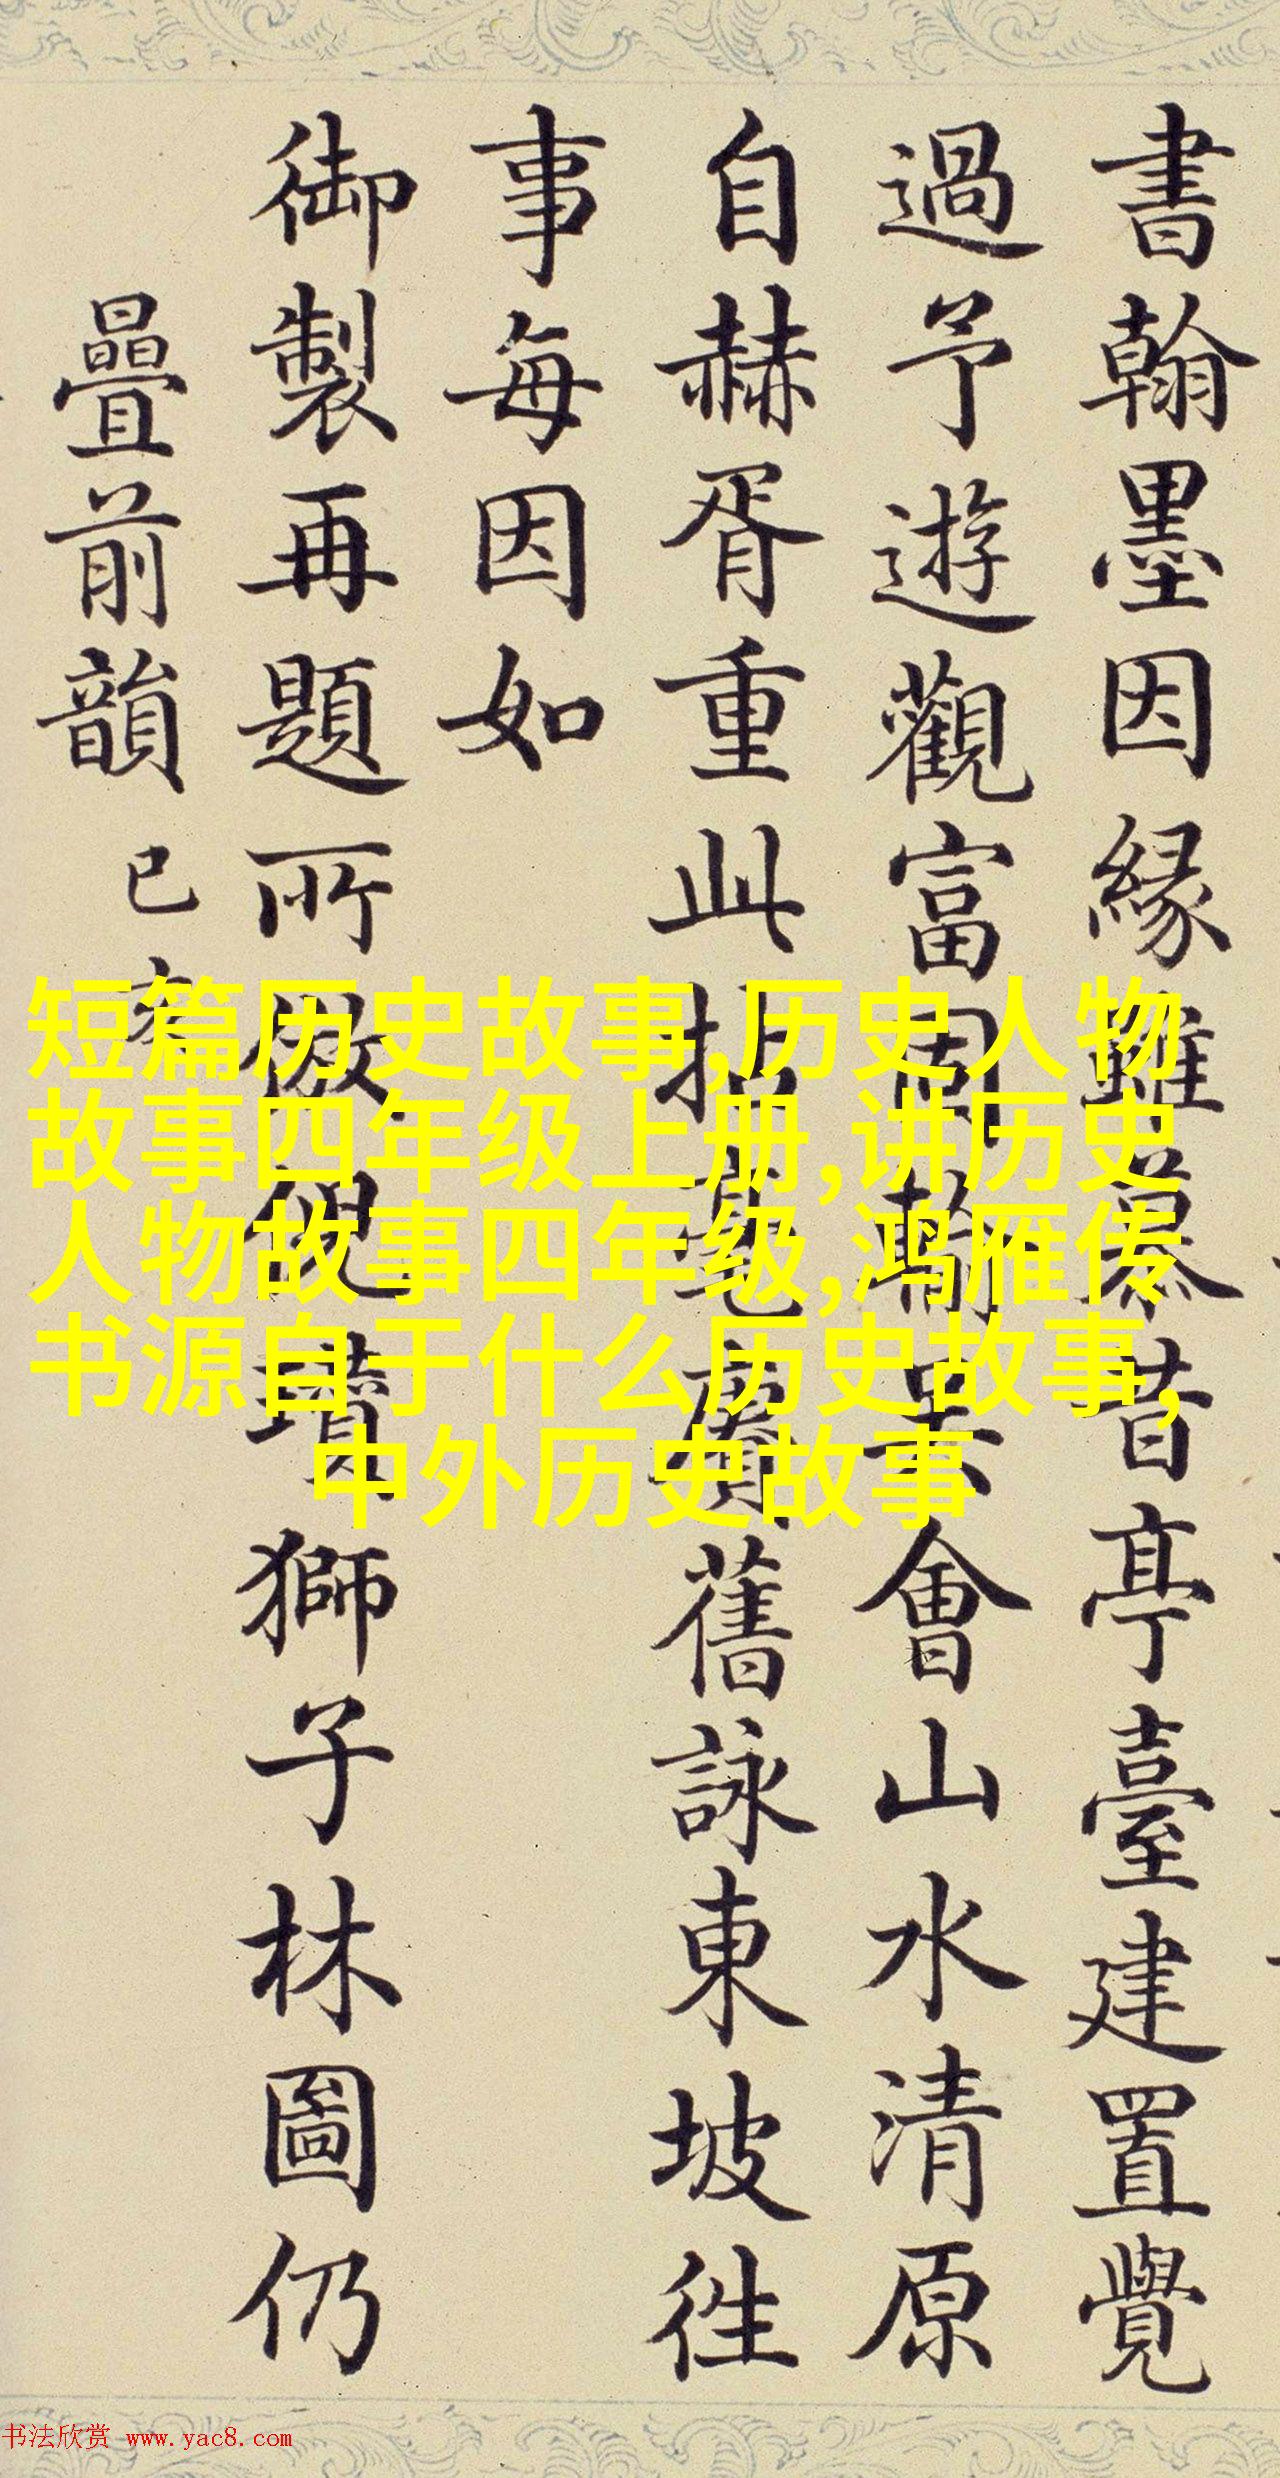 書翰墨因緣雖慕昔亭臺建置覺
過予遊觀富周瀚墨會山水清原
自赫胥重此拈毫賡舊詠東坡徃
事每因如
御製再題所倣倪瓚獅子林圖仍
疊前韻 已亥
短篇历史故事,历史人物
故事四年级上册,讲历史
人物故事四年级,鸿雁传
书源自于什么历史故事,
中外历史故事
书法欣赏 www.yac8.com